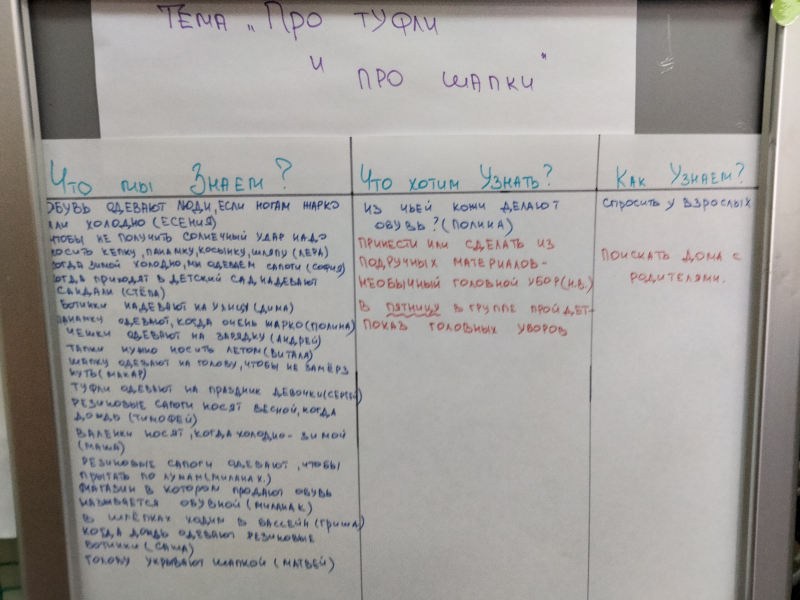 Тема „Про туфли
и
про шапки"
Что мы Знаем?
Обувь одевают люди, если ногам жарко
или холодно (Есения)
Чтобы не получить солнечный удар надо
носить кепку, панамку, косынку, шляпу (Лера)
Когда зимой холодно, мы одеваем сапоги (София)
Когда приходят в детский сад, надевают
сандали (Стёпа)
Ботинки надевают на улицу (Дима)
Панамку одевают, когда очень жарко (Полина)
Чешки одевают на зарядку (Андрей)
Тапки нужно носить летом (Витала)
Шапку одевают на голову, чтобы не замёрз
нуть (Макар)
Туфли одевают на праздник девочки (Сергей)
Резиновые сапоги носят весной, когда
дождь (Тимофей)
Валенки носят, когда холодно - зимой
(Маша)
Резиновые сапоги одевают, чтобы
прыгать по лужам (Милана Х.)
Магазин в котором продают обувь
называется обувной (Милана К)
В шлёпках ходим в бассейн (Гриша)
Когда дождь одевают резиновые
ботинки (Саша)
Голову укрывают шапкой (Матвей)
Что хотим Узнать?
Из чьей кожи делают
обувь? (Полина)
Принести или сделать из
подручных материалов-
необычный головной убор (Н.В.)
В пятницу в группе пройдет-
показ головных уборов
Как Узнаем?
Спросить у взрослых
Поискать дома с
родителями.